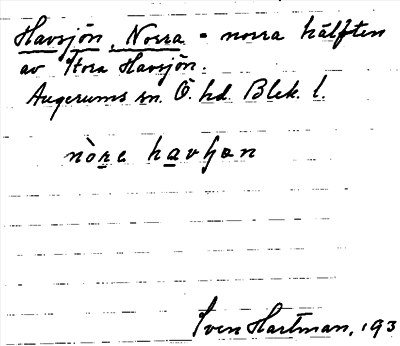 Havsjön, Norra = norra hälften
av Stora Havsjön.
Augerums sn. Ö. hd. Blek. l.
nòre havʃøn
Sven Hartman, 193